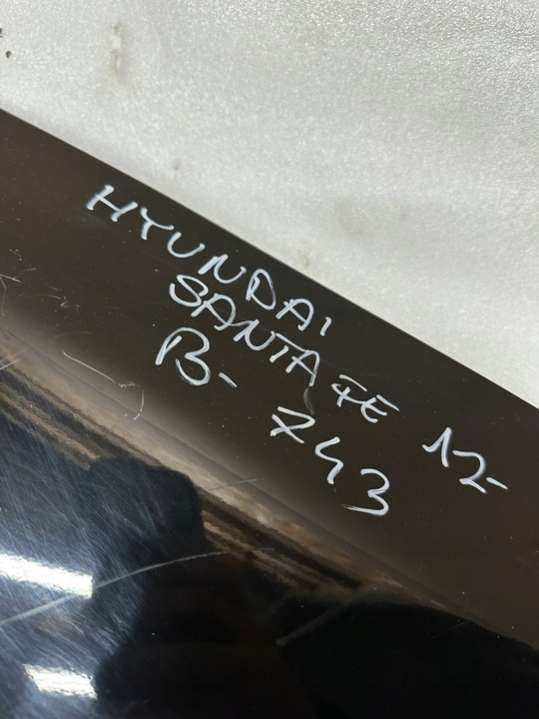 HYUNDAI
SANTA FE 12-
B- 743